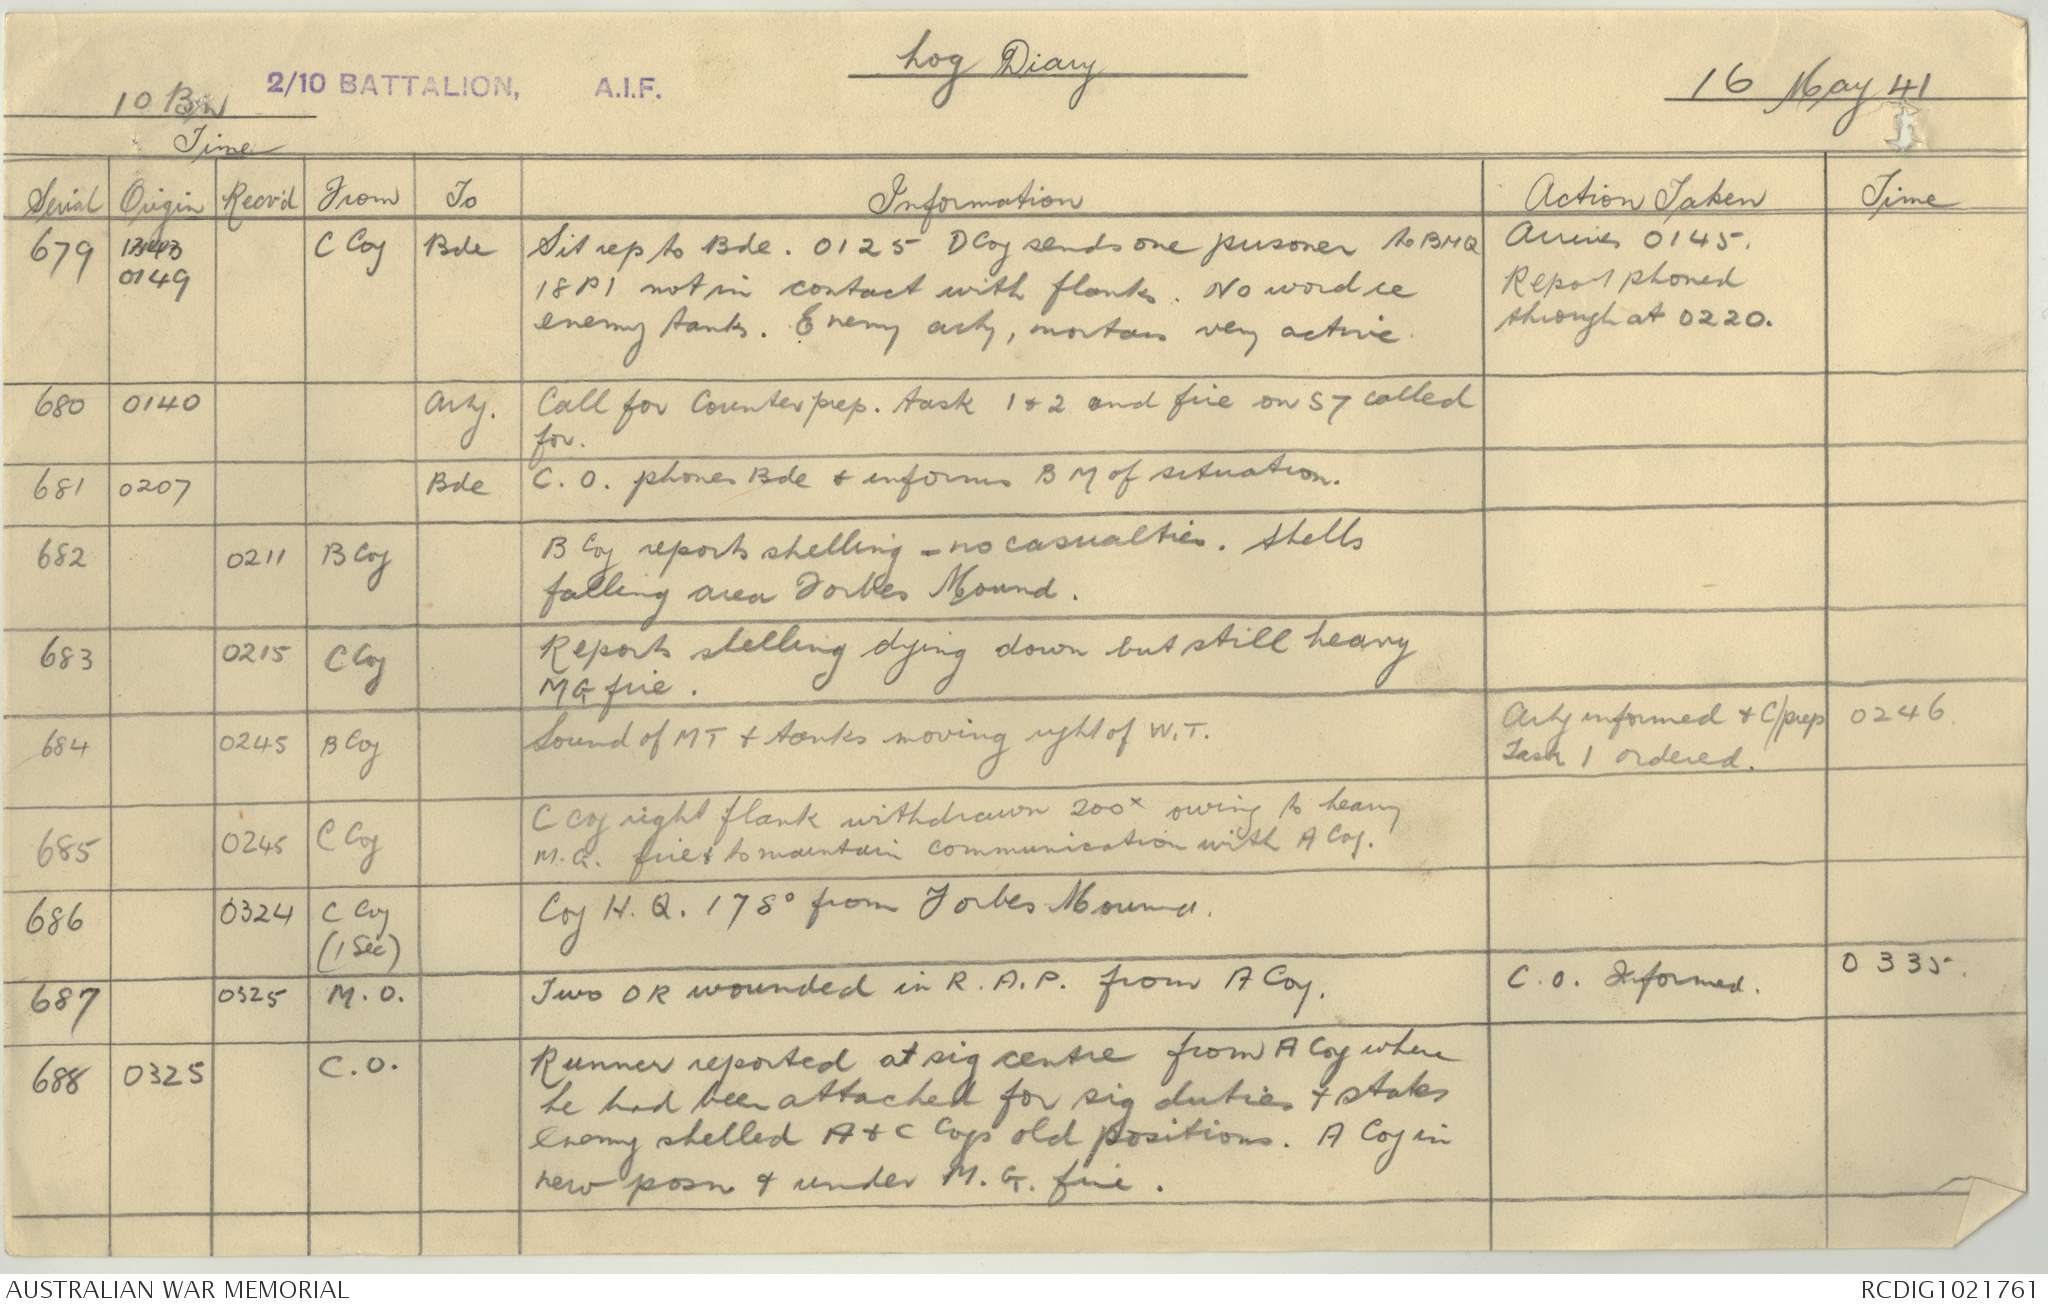 Log Diary
10 Bn 2/10 BATTALION, A.I.F. 16 May 41
Time
Serial Origin Recv'd From To Information Action Taken Time
679 C Coy Bde Sit rep to Bde. 0125 D Coy sends one prisoner to BHQ Arrives 0145.
0149 18 Pl not in contact with flanks. No word re Report phoned
enemy tanks. Enemy arty, mortars very active. through at 0220.
680 0140 Arty. Call for Counter prep. task 1 & 2 and fire on S7 called
for.
681 0207 Bde C. O. phones Bde & informs B M of situation.
682 0211 B Coy B Coy reports shelling - no casualties. Shells
falling area Forbes Mound.
683 0215 C Coy Reports shelling dying down but still heavy
MG fire.
684 0245 B Coy Sound of MT & tanks moving right of W.T. Arty informed & C/prep 0246
Task 1 ordered.
685 0245 C Coy C Coy right flank withdrawn 200x owing to heavy
M.G. fire & to maintain communication with A Coy.
686 0324 C Coy Coy H.Q. 178° from Forbes Mound.
(1 Sec)
687 0325 M.O. Two OR wounded in R.A.P. from A Coy. C.O. Informed. 0335.
688 0325 C.O. Runner reported at sig centre from A Coy where
he had been attached for sig duties & states
Enemy shelled A & C Coys old positions. A Coy in
new posn & under M.G. fire.
AUSTRALIAN WAR MEMORIAL RCDIG1021761